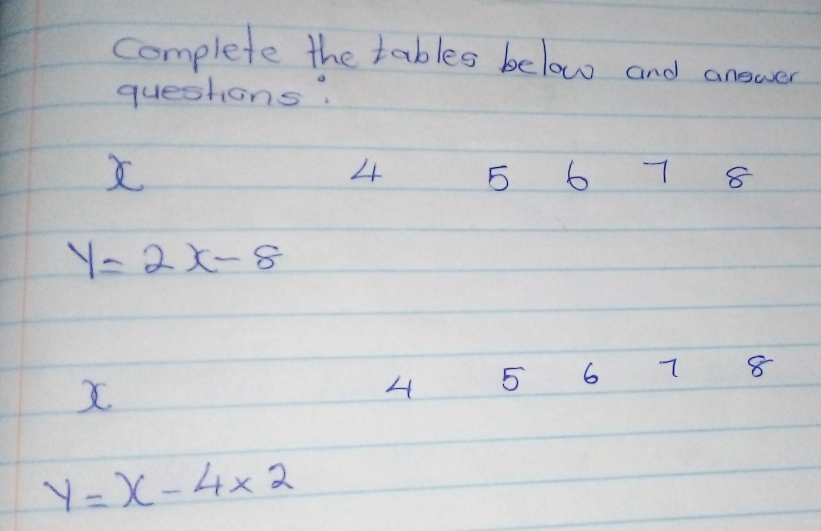 Complete the tables below and answer
questions:
x 4 5 6 7 8
Y = 2x - 8
x 4 5 6 7 8
Y = x - 4 x 2